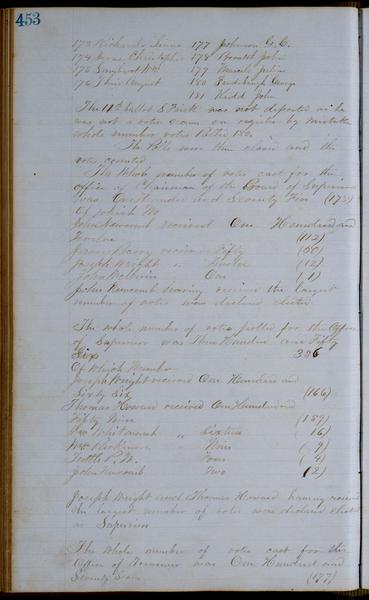 453
173 Richard 177 Johnson G. C.
174 Christopher 178 John
175 Wm 179
176 August 180 George
181 Kidd John
The 11th ballot S. Frick was not deposited as he
was not a voter name on register by mistake
whole number votes 180.
The Polls were then closed and the
votes counted
The Whole number of votes cast for the
office of Chairman of the Board of Supervisors
was One Hundred and Seventy Five (175)
Of which No
John Newcomb received One Hundred and
Twelve (112)
Barry received Fifty (50)
Joseph Wright " Twelve (12)
John " One (1)
John Newcomb having received the largest
number of votes was declared elected
The whole number of votes polled for the Office
of Supervisor was Three Hundred and Fifty
Six 356
Of Which Number
Joseph Wright received One Hundred and
Sixty Six (166)
Thomas Howard received One Hundred and
Fifty Nine (159)
Wm Whitcomb " Sixteen 16)
Wm " Nine ( 9)
Tuttle P. W. Four ( 4)
John Newcomb Two (2)
Joseph Wright and Thomas Howard having received
the largest number of votes were declared elected
as Supervisors
The whole number of votes cast for the
Office of Treasurer was One Hundred and
Seventy Seven (177)